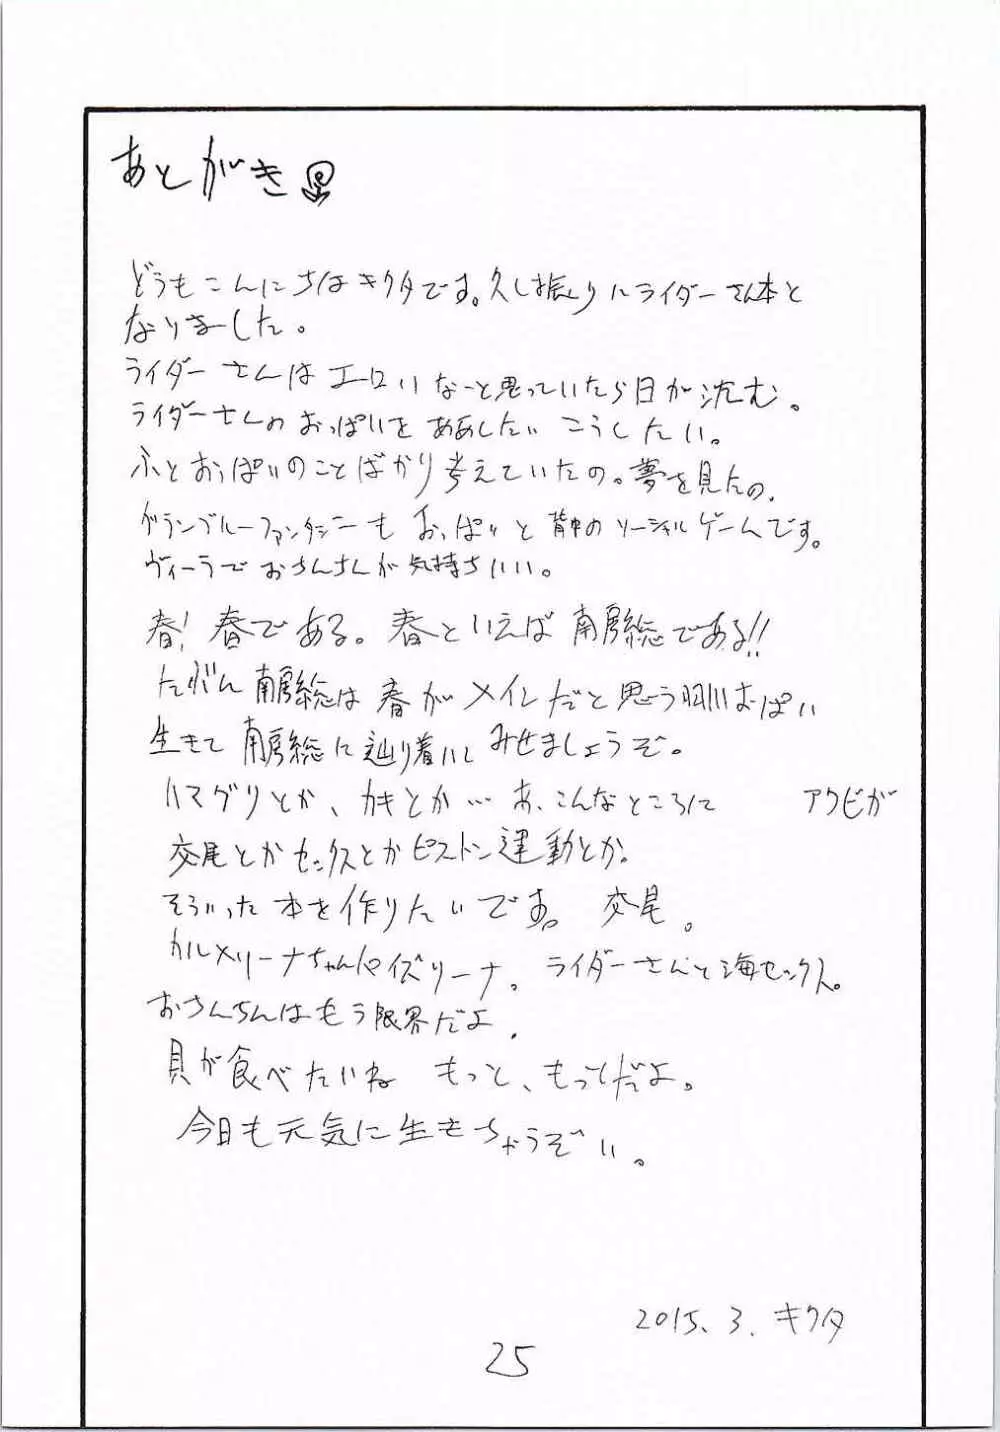 あとがき
どうもこんにちはキクタです。久し振りにライダーさん本と
なりました。
ライダーさんはエロいなーと思っていたら日が沈む。
ライダーさんのおっぱいをああしたいこうしたい。
ふとおっぱいのことばかり考えていたの。夢を見たの。
グランブルーファンタジーもおっぱいと背中のソーシャルゲームです。
ヴィーラでおちんちんが気持ちいい。
春!春である。春といえば南房総である!!
たぶん南房総は春がメインだと思う
おっぱい
生きて南房総に辿り着いてみせましょうぞ。
ハマグリとか、カキとか…あ、こんなところに アワビが
交尾とかセックスとかピストン運動とか。
そういった本を作りたいです。交尾。
カルメリーナちゃんパイズリーナ。ライダーさんと海セックス。
おちんちんはもう限界だよ。
貝が食べたいね もっと、もっとだよ。
今日も元気に生きちゃうぞい。
2015.3.キクタ
25